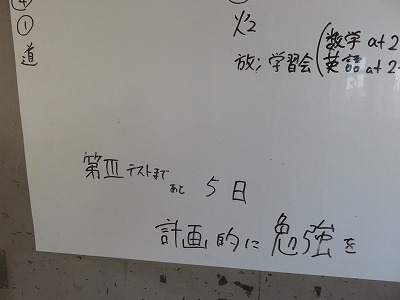 ④
①
道
火2
放；学習会(数学 at 2
英語 at 2-
第Ⅲテストまで
あと 5日
計画的に勉強を